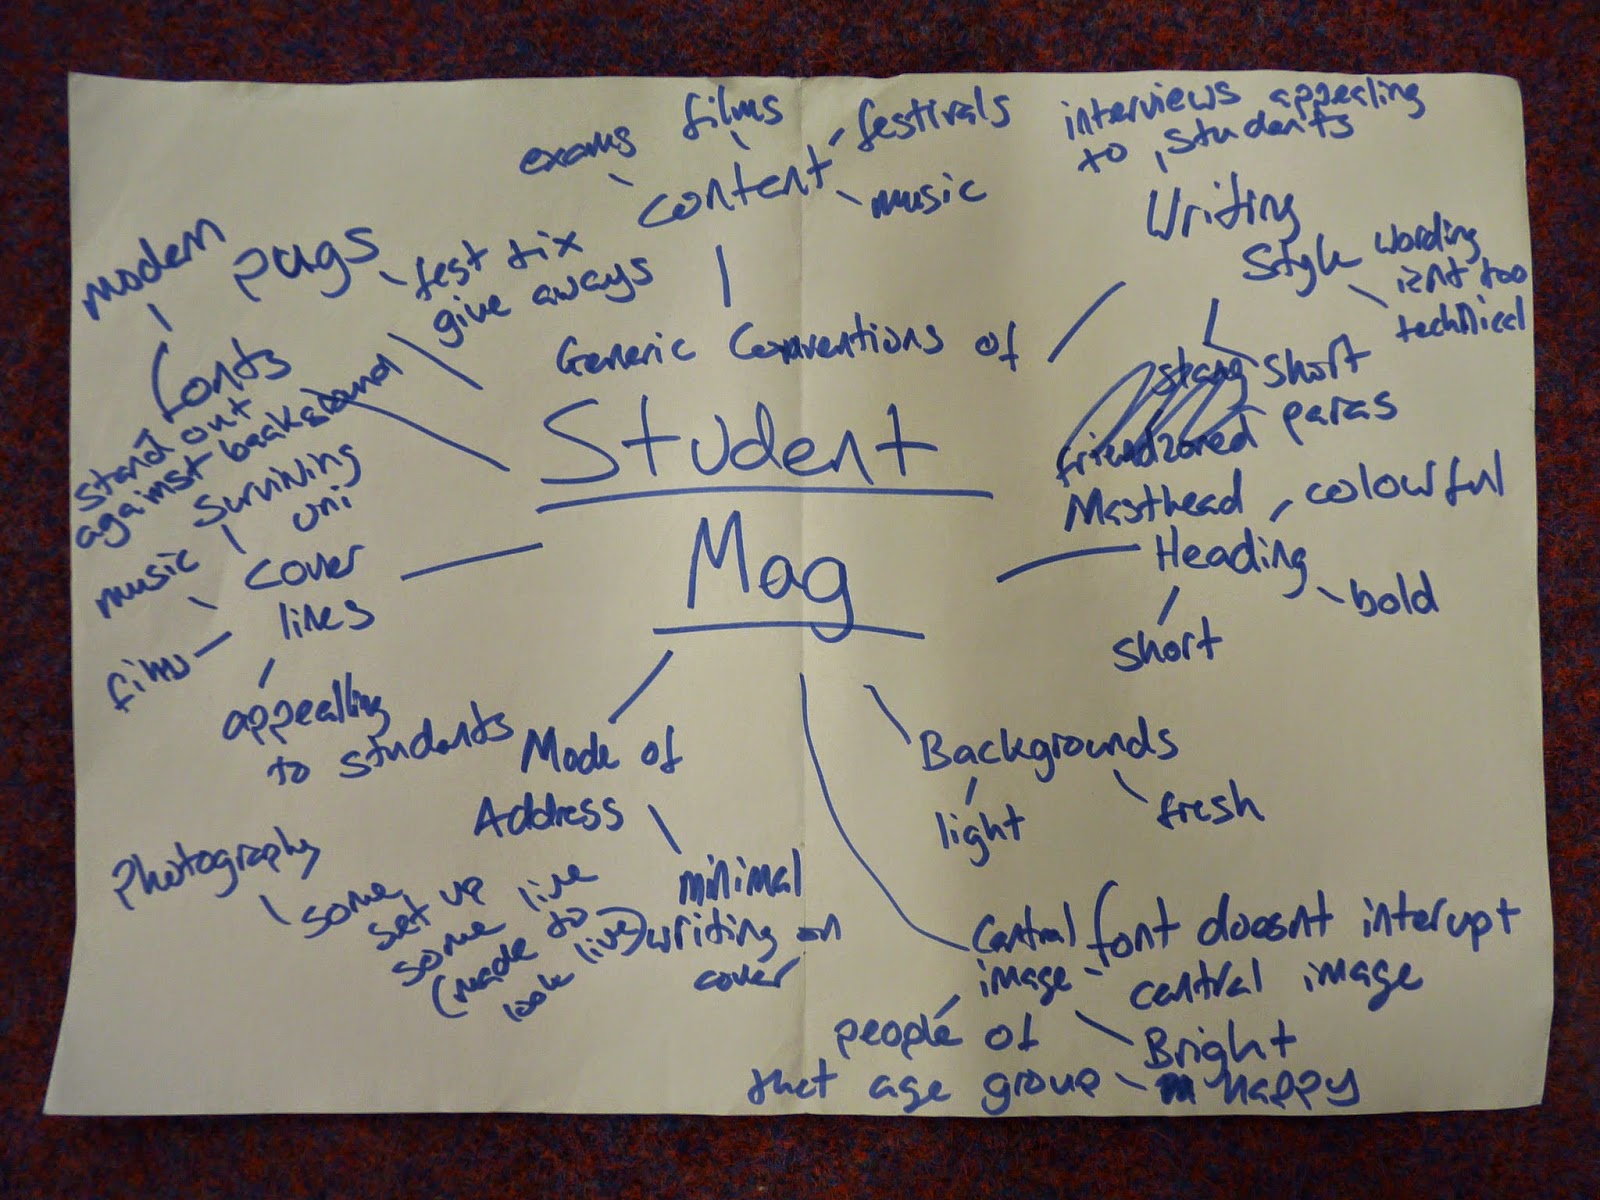 Generic Conventions of
Student
Mag
content
exams
films
festivals
music
interviews appealing
to students
Writing
Style
wording
isnt too
technical
short
paras
friendzoned
Masthead
Heading
colourful
bold
short
Backgrounds
light
fresh
Central
image
font doesnt interupt
central image
Bright
happy
people of
that age group
Mode of
Address
minimal
writing on
cover
Photography
some
set up
some live
(made to
look live)
cover
lines
surviving
uni
music
films
appealling
to students
fonts
modern
stand out
against background
pugs
fest tix
give aways